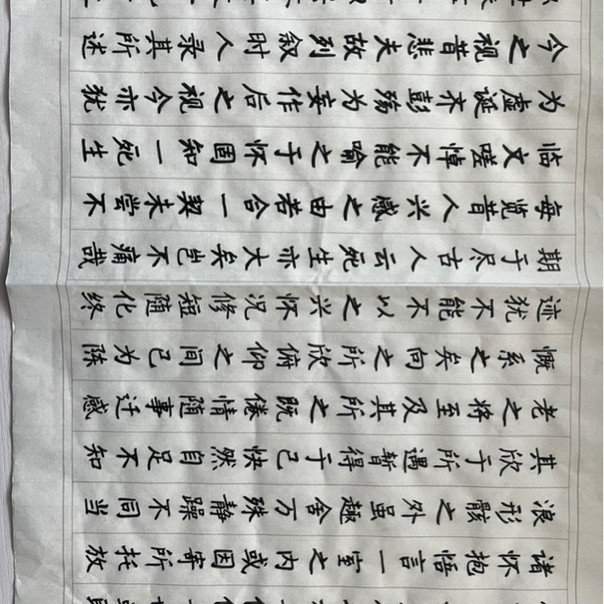 诸怀抱悟言一室之内或因寄所托放
浪形骸之外虽趣舍万殊静躁不同当
其欣于所遇暂得于己快然自足不知
老之将至及其所之既倦情随事迁感
慨系之矣向之所欣俯仰之间已为陈
迹犹不能不以之兴怀况修短随化终
期于尽古人云死生亦大矣岂不痛哉
每览昔人兴感之由若合一契未尝不
临文嗟悼不能喻之于怀固知一死生
为虚诞齐彭殇为妄作后之视今亦犹
今之视昔悲夫故列叙时人录其所述